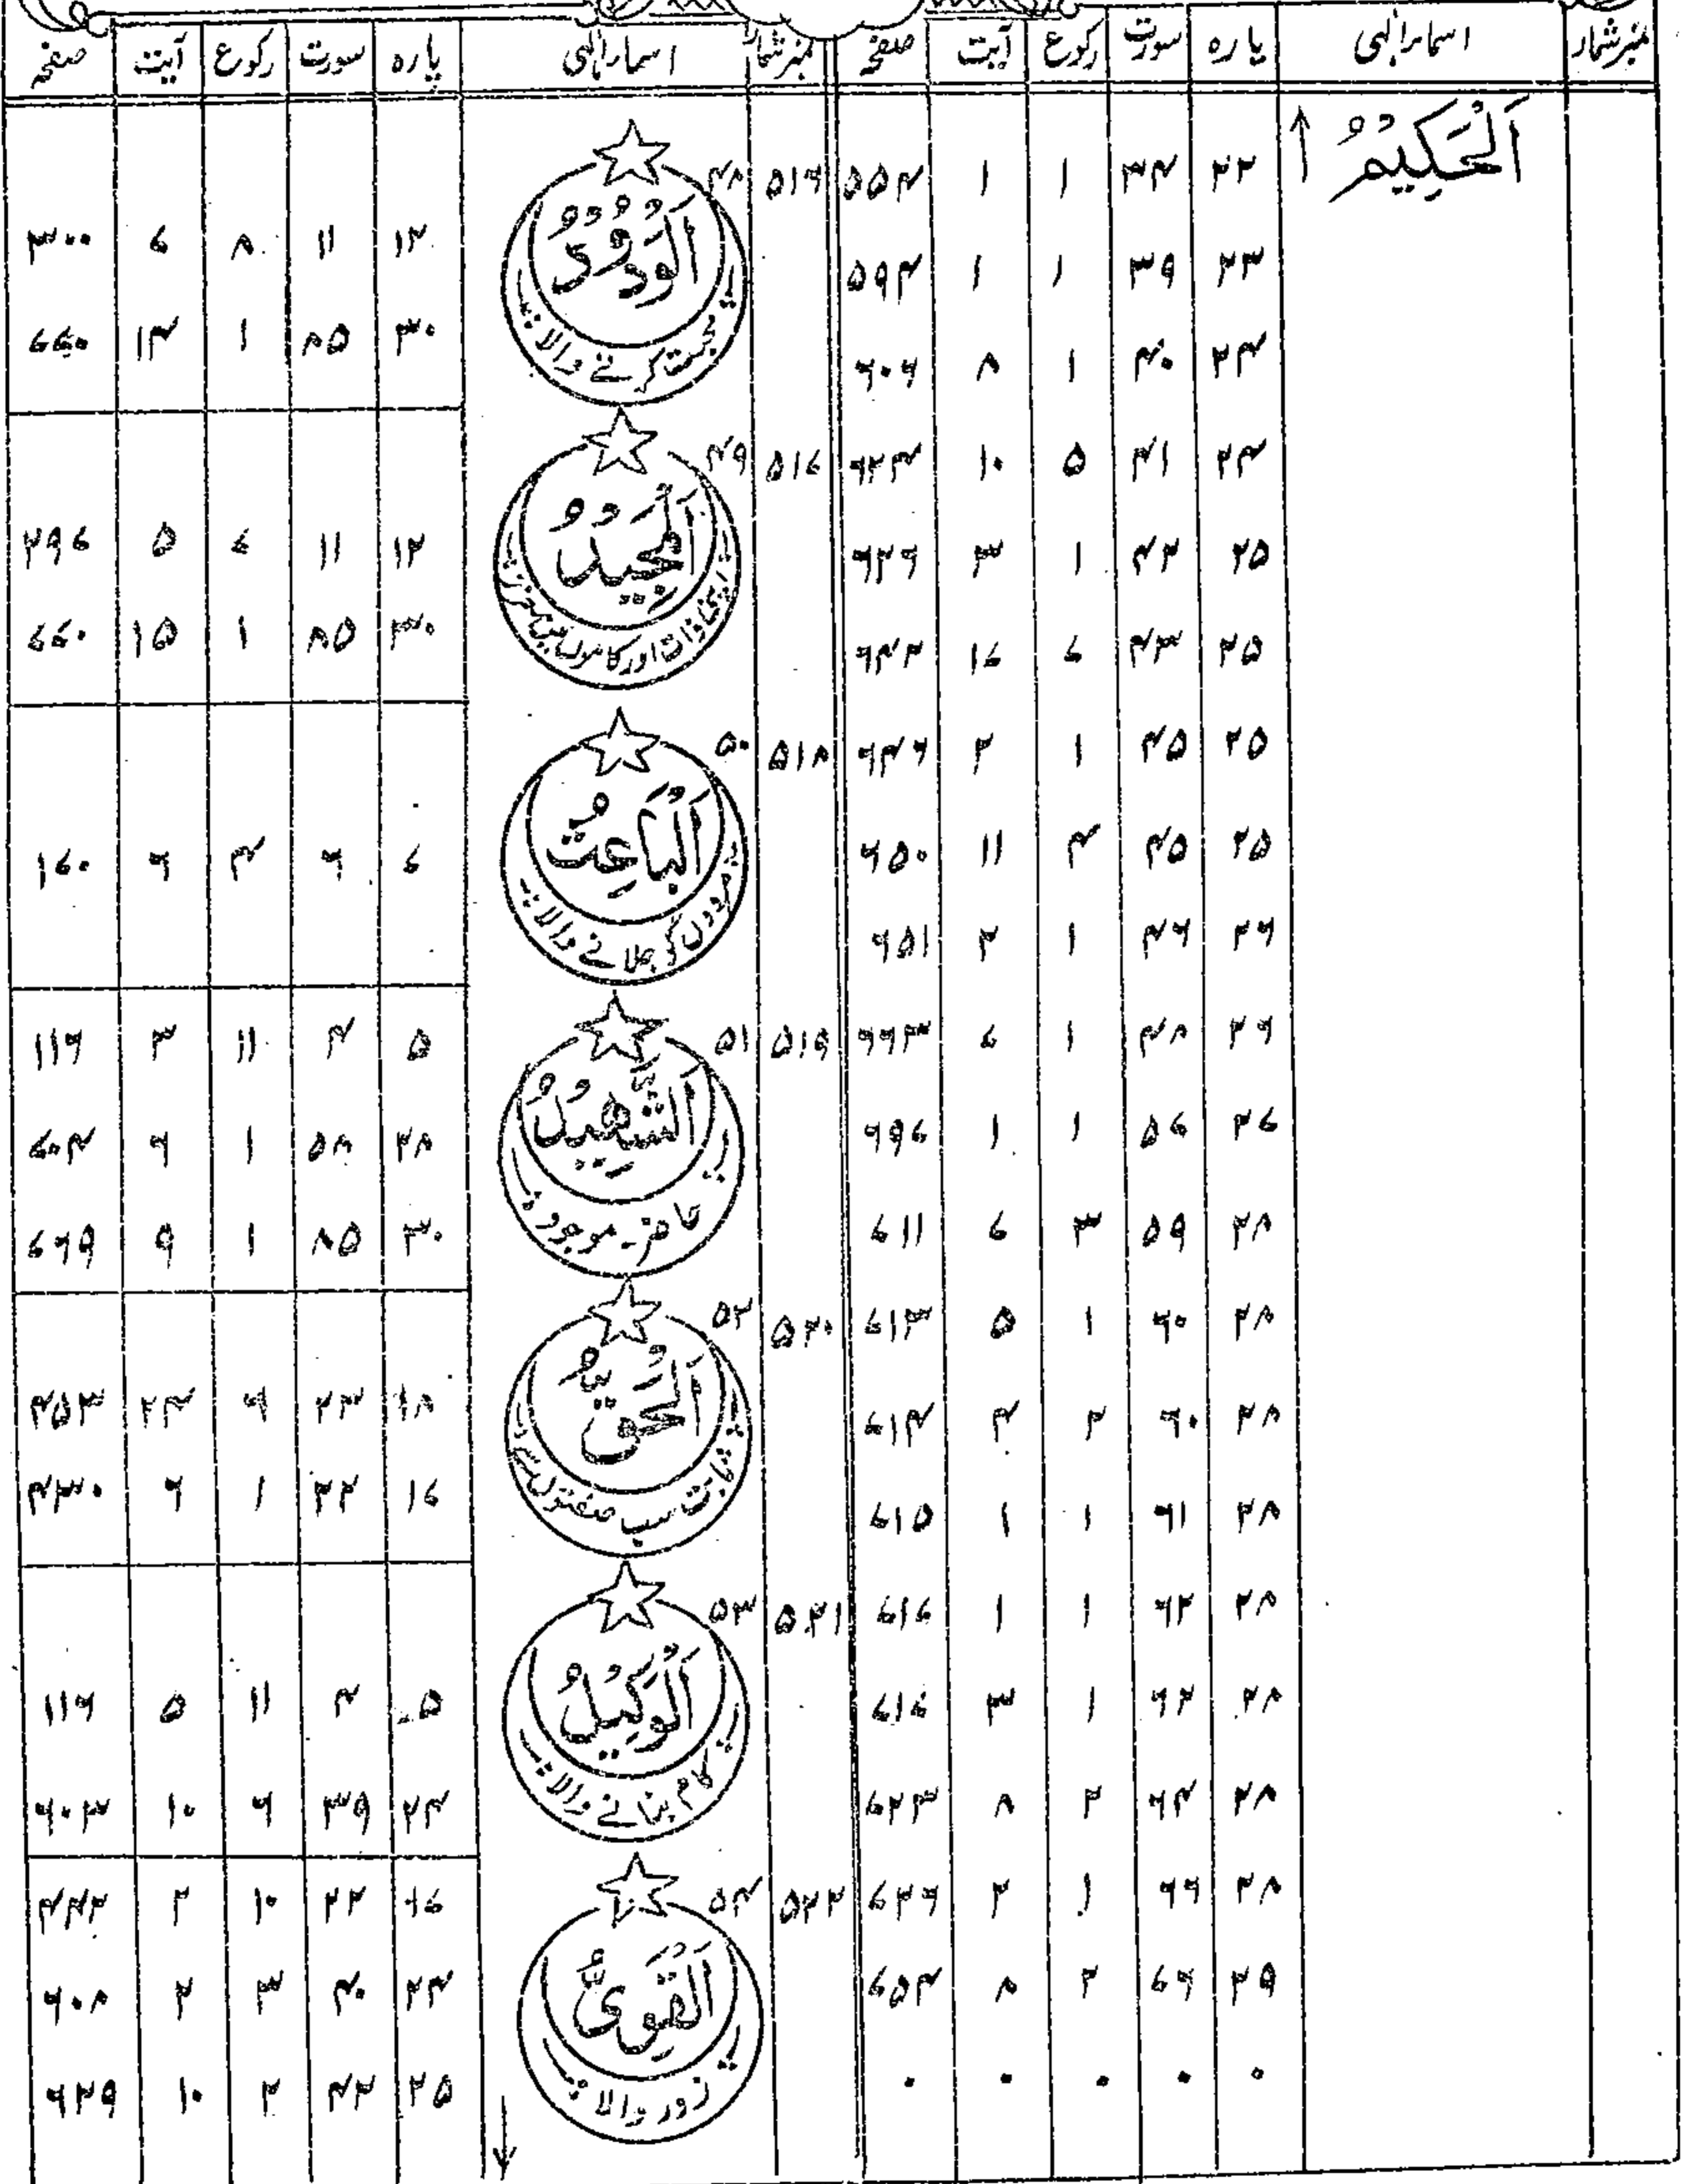 نمبر شمار اسماء الٰہی پارہ سورت رکوع آیت صفحہ
اَلْحَكِيْمُ ↑ ۲۲ ۳۴ ۱ ۱ ۵۵۴
۲۳ ۳۹ ۱ ۱ ۵۹۴
۲۴ ۴۰ ۱ ۸ ۶۰۶
۲۴ ۴۱ ۵ ۱۰ ۶۲۴
۲۵ ۴۲ ۱ ۳ ۶۲۶
۲۵ ۴۳ ۷ ۱۷ ۶۴۲
۲۵ ۴۵ ۱ ۲ ۶۴۶
۲۵ ۴۵ ۴ ۱۱ ۶۵۰
۲۶ ۴۶ ۱ ۲ ۶۵۱
۲۶ ۴۸ ۱ ۷ ۶۶۳
۲۷ ۵۷ ۱ ۱ ۶۹۷
۲۸ ۵۹ ۳ ۷ ۷۱۱
۲۸ ۶۰ ۱ ۵ ۷۱۳
۲۸ ۶۰ ۲ ۴ ۷۱۴
۲۸ ۶۱ ۱ ۱ ۷۱۵
۲۸ ۶۲ ۱ ۱ ۷۱۷
۲۸ ۶۲ ۱ ۳ ۷۱۷
۲۸ ۶۴ ۲ ۸ ۷۲۳
۲۸ ۶۶ ۱ ۲ ۷۲۶
۲۹ ۷۶ ۲ ۸ ۷۵۴
۰ ۰ ۰ ۰ ۰
نمبر شمار اسماء الٰہی پارہ سورت رکوع آیت صفحہ
۵۱۶ ۴۸
اَلْوَدُوْدُ
محبت کرنے والا
۱۲ ۱۱ ۸ ۷ ۳۰۰
۳۰ ۸۵ ۱ ۱۴ ۷۷۰
۵۱۷ ۴۹
اَلْمَجِيْدُ
اپنی ذات اور کاموں میں معزز
۱۲ ۱۱ ۷ ۵ ۲۹۷
۳۰ ۸۵ ۱ ۱۵ ۷۷۰
۵۱۸ ۵۰
اَلْبَاعِثُ
مردوں کو جلانے والا
۷ ۶ ۴ ۶ ۱۷۰
۵۱۹ ۵۱
اَلشَّهِيْدُ
حاضر۔ موجود
۵ ۴ ۱۱ ۳ ۱۱۶
۲۸ ۵۸ ۱ ۶ ۷۰۴
۳۰ ۸۵ ۱ ۹ ۷۶۹
۵۲۰ ۵۲
اَلْحَقُّ
ثابت سب صفتوں سے
۱۸ ۲۳ ۶ ۲۴ ۴۵۳
۱۷ ۲۲ ۱ ۶ ۴۳۰
۵۲۱ ۵۳
اَلْوَكِيْلُ
کام بنانے والا
۵ ۴ ۱۱ ۵ ۱۱۶
۲۴ ۳۹ ۶ ۱۰ ۶۰۳
۵۲۲ ۵۴
اَلْقَوِىُّ
زور والا
۱۷ ۲۲ ۱۰ ۲ ۴۴۲
۲۴ ۴۰ ۳ ۲ ۶۰۸
↓ ۲۵ ۴۲ ۲ ۱۰ ۶۲۹